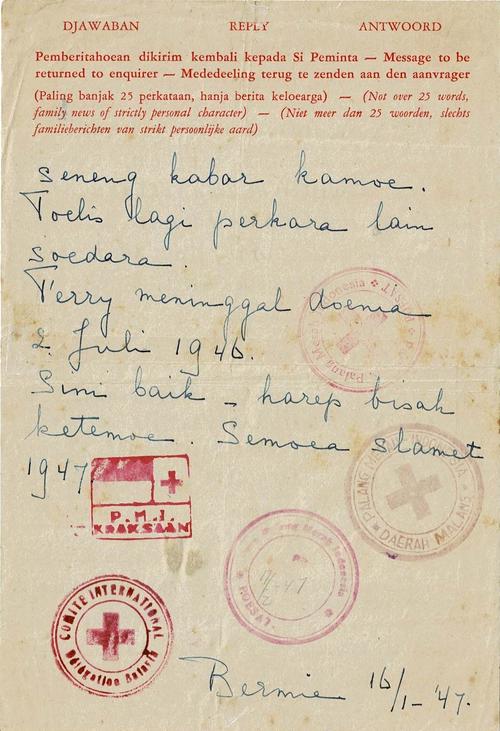 DJAWABAN REPLY ANTWOORD
Pemberitahoean dikirim kembali kepada Si Peminta — Message to be
returned to enquirer — Mededeeling terug te zenden aan den aanvrager
(Paling banjak 25 perkataan, hanja berita keloearga) — (Not over 25 words,
family news of strictly personal character) — (Niet meer dan 25 woorden, slechts
familieberichten van strikt persoonlijke aard)
Seneng kabar kamoe.
Toelis lagi perkara lain
soedara.
Terry meninggal doenia
2 Juli 1946.
Sini baik – harep bisah
ketemoe. Semoea slamet
1947.
P.M.I.
KRAKSAÄN
PALANG MERAH INDONESIA
DAERAH MALANG
Palang Merah Indonesia
POESAT
COMITÉ INTERNATIONAL
Délégation Batavia
Bernie 16/1-'47.